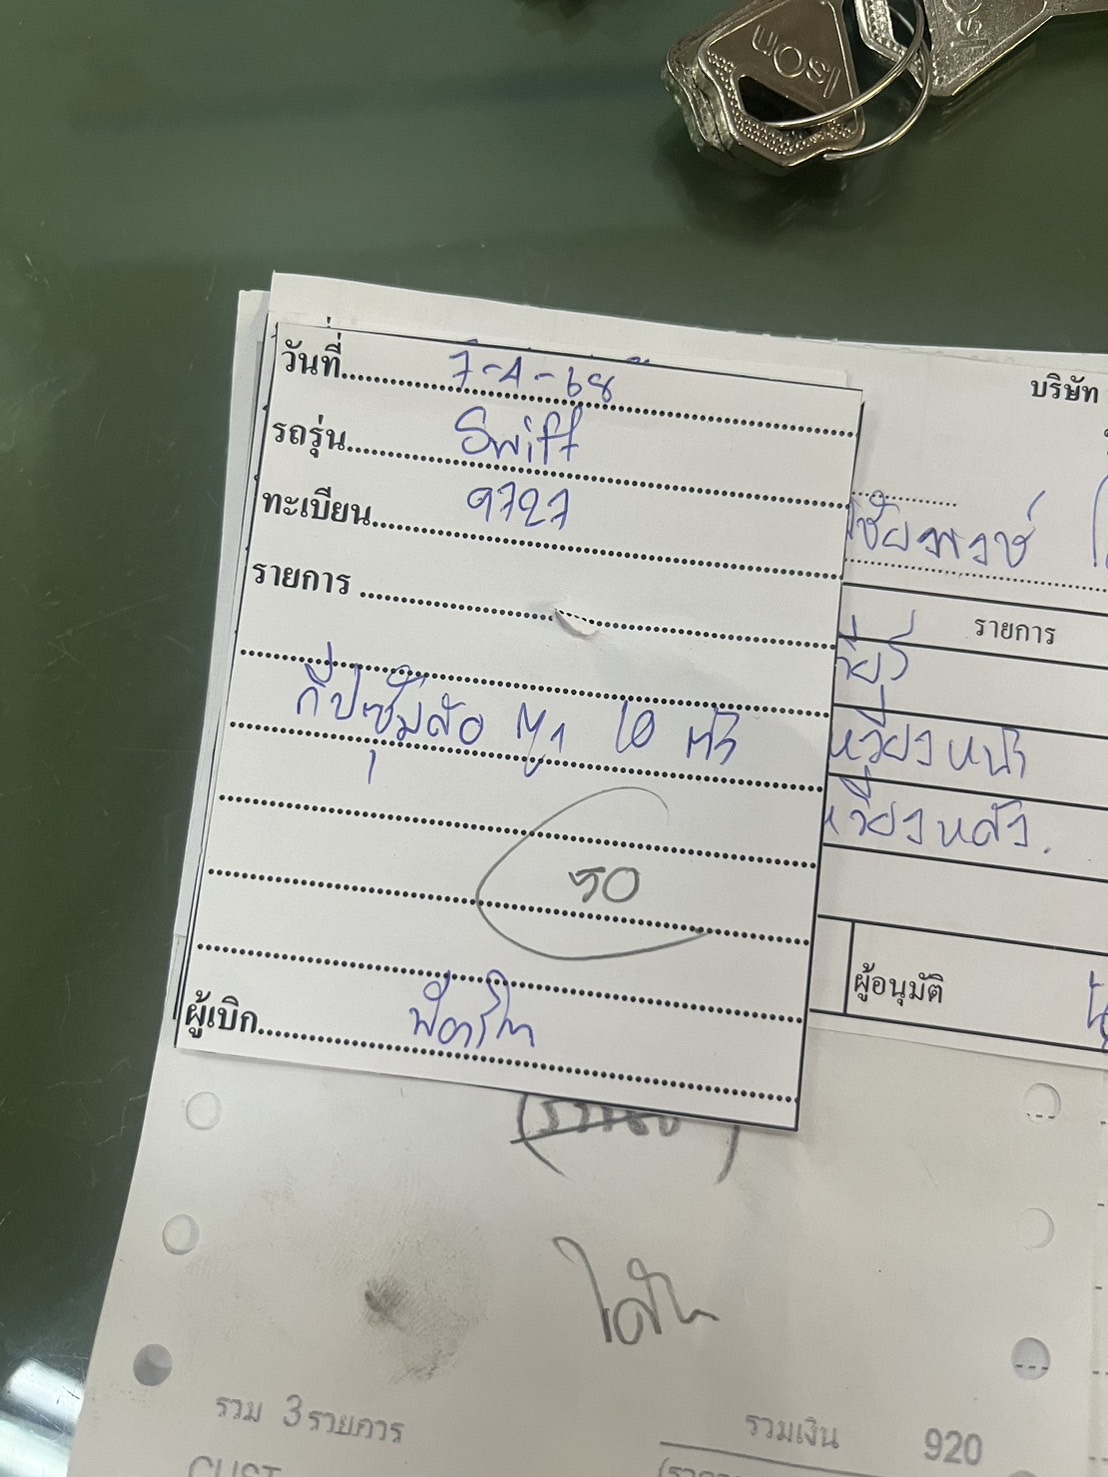 IsOn
วันที่ 7-4-68
รถรุ่น Swift
ทะเบียน 9727
รายการ
กิ๊ปซุ้มล้อ 10 ตัว
50
ผู้เบิก
บริษัท
ชัยพงษ์
รายการ
เหวี่ยงหน้า
เหวี่ยงหลัง.
ผู้อนุมัติ
รวม 3 รายการ
รวมเงิน 920
CUST